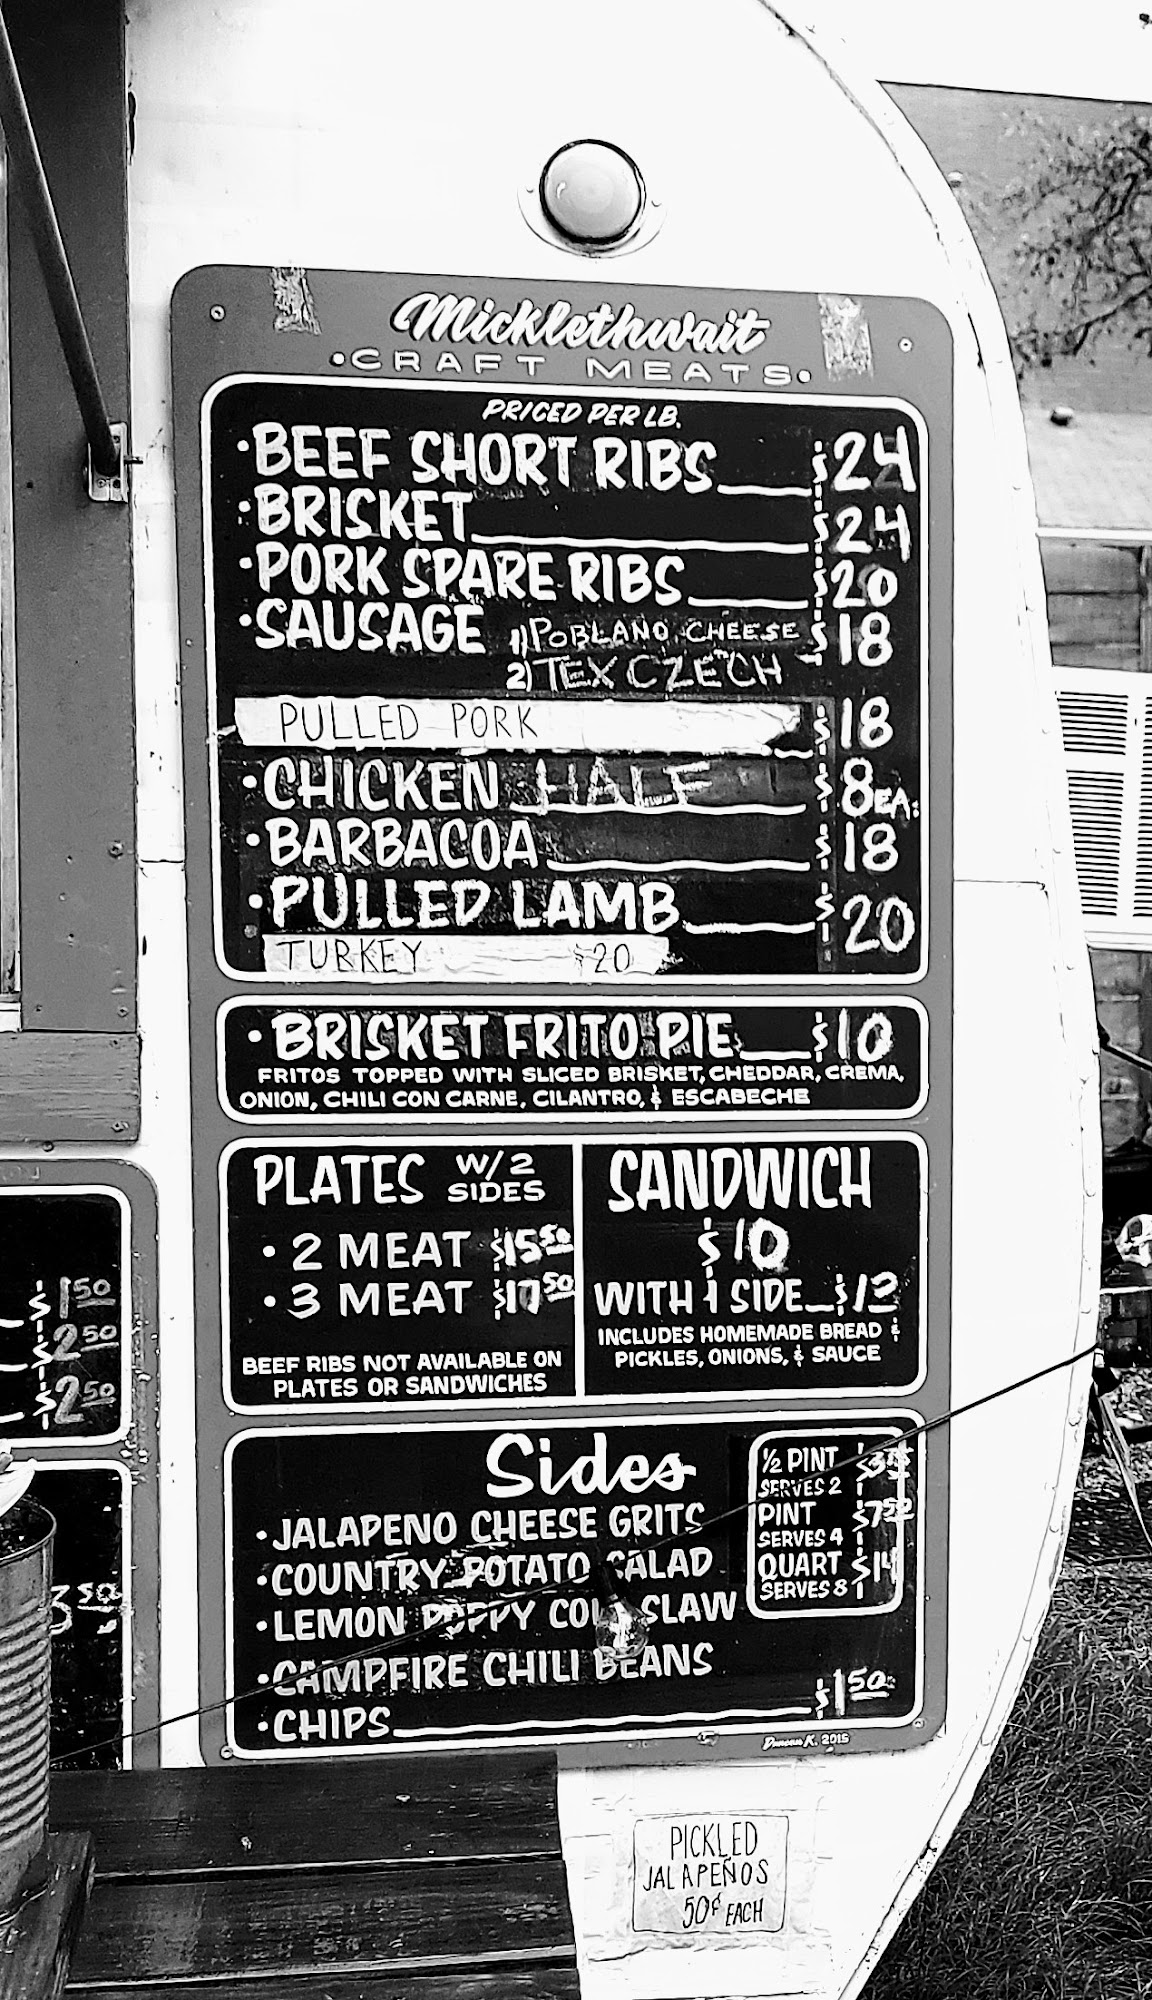 Micklethwait
•CRAFT MEATS•
PRICED PER LB.
•BEEF SHORT RIBS $24
•BRISKET $24
•PORK SPARE RIBS $20
•SAUSAGE 1) POBLANO CHEESE $18
2) TEX CZECH
PULLED PORK $18
•CHICKEN HALF $8 EA.
•BARBACOA $18
•PULLED LAMB $20
TURKEY $20
•BRISKET FRITO PIE $10
FRITOS TOPPED WITH SLICED BRISKET, CHEDDAR, CREMA,
ONION, CHILI CON CARNE, CILANTRO, & ESCABECHE
PLATES W/ 2 SIDES
•2 MEAT $15.50
•3 MEAT $17.50
BEEF RIBS NOT AVAILABLE ON
PLATES OR SANDWICHES
SANDWICH
$10
WITH 1 SIDE
INCLUDES HOMEMADE BREAD &
PICKLES, ONIONS, & SAUCE
Sides
•JALAPENO CHEESE GRITS
•COUNTRY POTATO SALAD
•LEMON POPPY COLE SLAW
•CAMPFIRE CHILI BEANS
•CHIPS $1.50
½ PINT
SERVES 2
PINT $7.50
SERVES 4
QUART $14
SERVES 8
Duncan K. 2015
PICKLED
JALAPEÑOS
50¢ EACH
$1.50
$2.50
$2.50
3.50